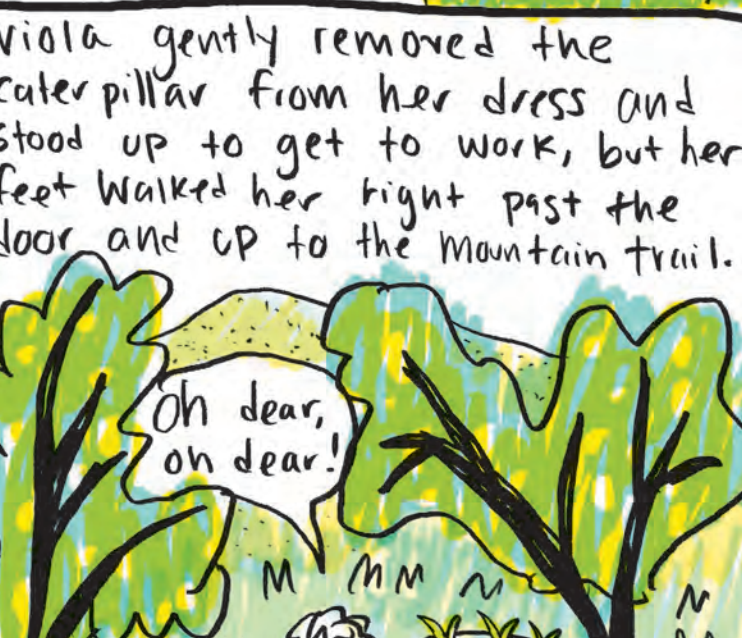 viola gently removed the
caterpillar from her dress and
stood up to get to work, but her
feet walked her right past the
door and up to the mountain trail.
Oh dear,
oh dear!